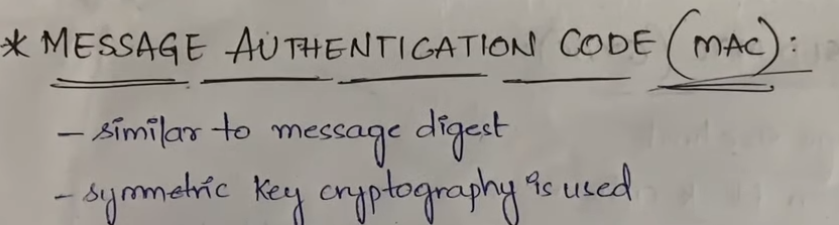 * MESSAGE AUTHENTICATION CODE (MAC):
- similar to message digest
- symmetric key cryptography is used